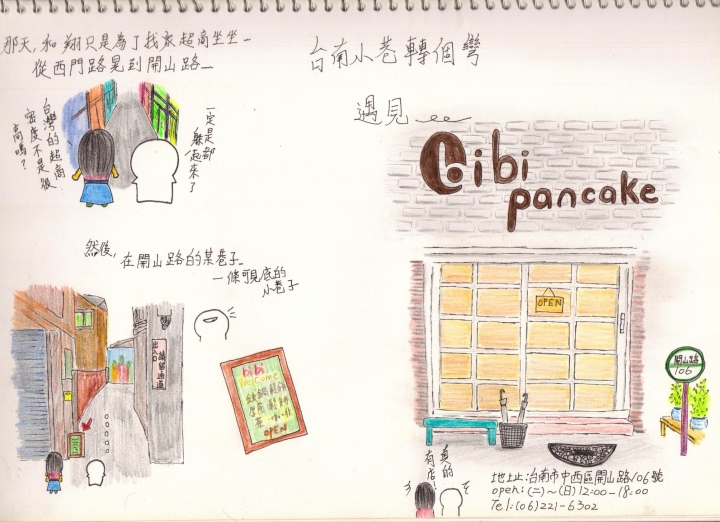 那天,和翔只是為了找家超商坐坐~
從西門路晃到開山路~
台灣的超商
密度不是很
高嗎?
一定是都
躲起來了
然後,在開山路的某巷子~
一條可見底的
小巷子
出入口
請留通道
bibi
Welcome
OPEN
台南小巷轉個彎
遇見
bibi
pancake
OPEN
開山路
106
真的
有店!
地址:台南市中西區開山路106號
open:(二)~(日)12:00-18:00
Tel:(06)221-6302